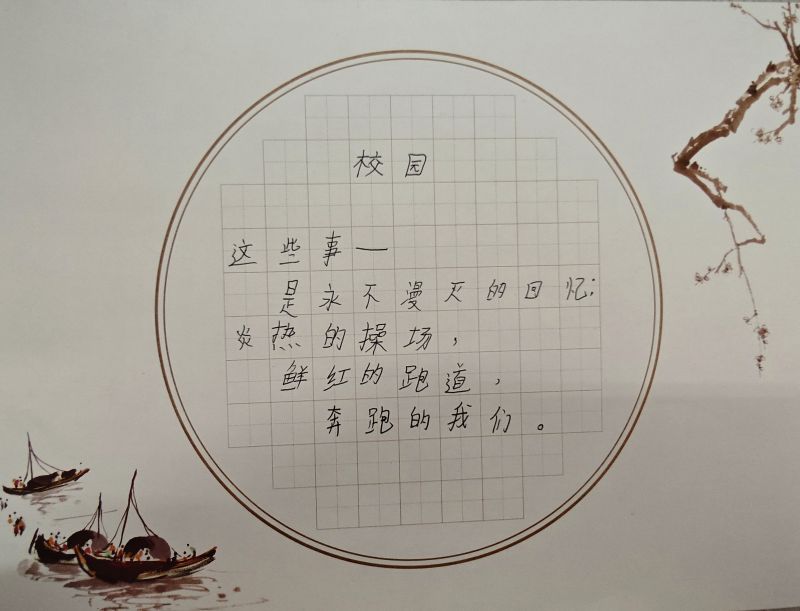 校园
这些事—
是永不漫灭的回忆；
炎热的操场，
鲜红的跑道，
奔跑的我们。